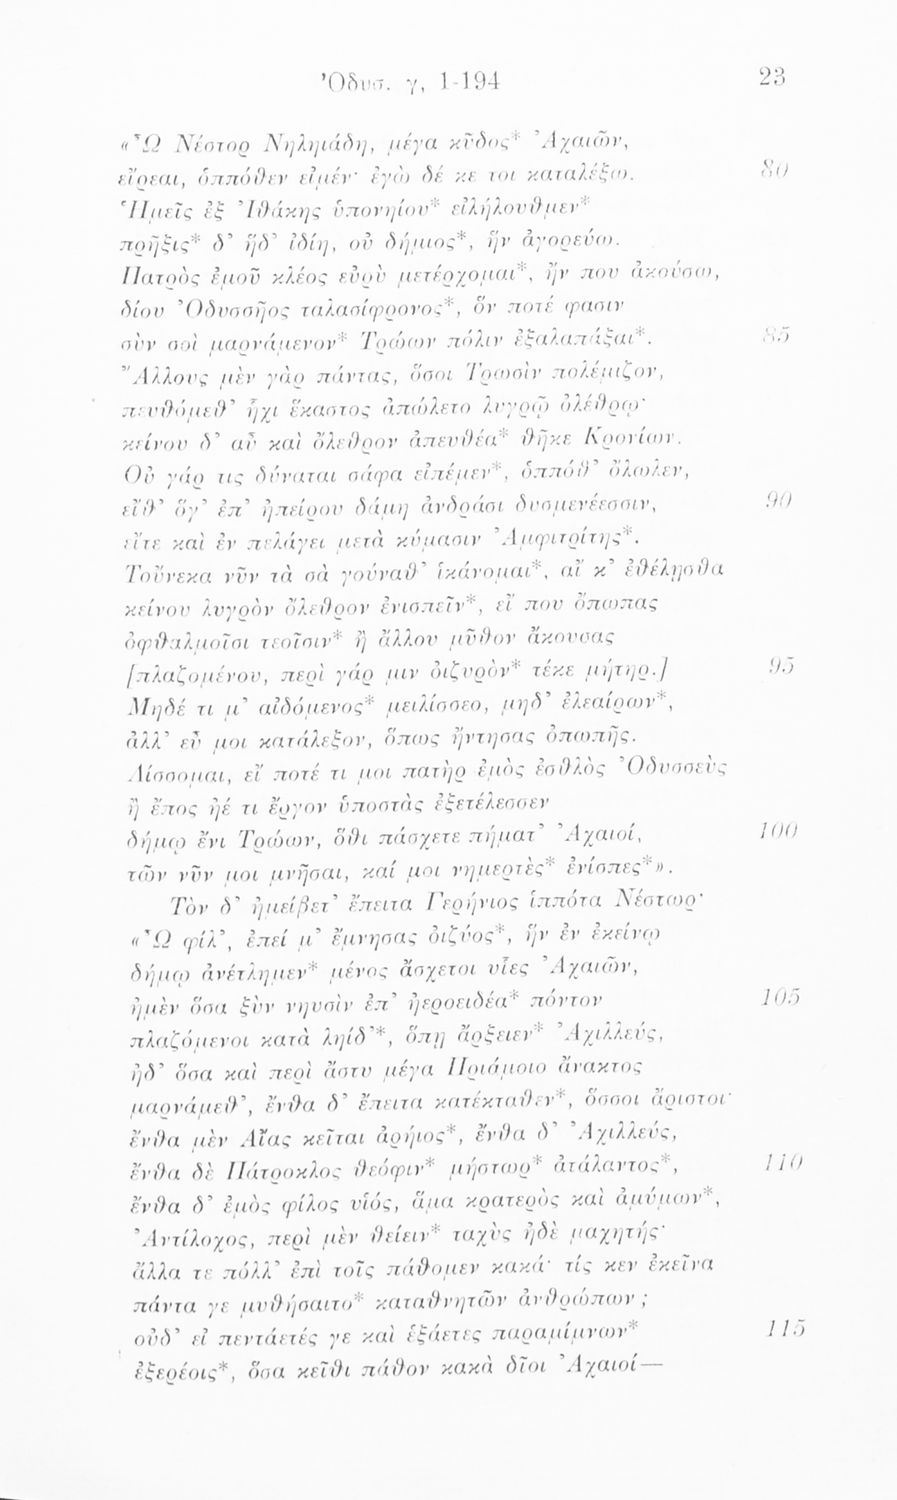 Ὀδυσ. γ, 1-194 23
«Ὦ Νέστορ Νηληιάδη, μέγα κῦδος* Ἀχαιῶν,
εἴρεαι, ὁππόθεν εἰμέν· ἐγὼ δέ κε τοι καταλέξω. 80
Ἡμεῖς ἐξ Ἰθάκης ὑπονηίου* εἰλήλουθμεν*
πρῆξις* δ' ἥδ' ἰδίη, οὐ δήμιος*, ἣν ἀγορεύω.
Πατρὸς ἐμοῦ κλέος εὐρὺ μετέρχομαι*, ἤν που ἀκούσω,
δίου Ὀδυσσῆος ταλασίφρονος*, ὅν ποτέ φασιν
σὺν σοὶ μαρνάμενον* Τρώων πόλιν ἐξαλαπάξαι*. 85
Ἄλλους μὲν γὰρ πάντας, ὅσοι Τρωσὶν πολέμιζον,
πευθόμεθ' ἧχι ἕκαστος ἀπώλετο λυγρῷ ὀλέθρῳ·
κείνου δ' αὖ καὶ ὄλεθρον ἀπευθέα* θῆκε Κρονίων.
Οὐ γάρ τις δύναται σάφα εἰπέμεν*, ὁππόθ' ὄλωλεν,
εἴθ' ὅγ' ἐπ' ἠπείρου δάμη ἀνδράσι δυσμενέεσσιν, 90
εἴτε καὶ ἐν πελάγει μετὰ κύμασιν Ἀμφιτρίτης*.
Τοὔνεκα νῦν τὰ σὰ γούναθ' ἱκάνομαι*, αἴ κ' ἐθέλῃσθα
κείνου λυγρὸν ὄλεθρον ἐνισπεῖν*, εἴ που ὄπωπας
ὀφθαλμοῖσι τεοῖσιν* ἢ ἄλλου μῦθον ἄκουσας
[πλαζομένου, περὶ γάρ μιν ὀιζυρὸν* τέκε μήτηρ.] 95
Μηδέ τι μ' αἰδόμενος* μειλίσσεο, μηδ' ἐλεαίρων*,
ἀλλ' εὖ μοι κατάλεξον, ὅπως ἤντησας ὀπωπῆς.
Λίσσομαι, εἴ ποτέ τι μοι πατὴρ ἐμὸς ἐσθλὸς Ὀδυσσεὺς
ἢ ἔπος ἠέ τι ἔργον ὑποστὰς ἐξετέλεσσεν
δήμῳ ἔνι Τρώων, ὅθι πάσχετε πήματ' Ἀχαιοί, 100
τῶν νῦν μοι μνῆσαι, καί μοι νημερτὲς* ἐνίσπες*».
Τὸν δ' ἠμείβετ' ἔπειτα Γερήνιος ἱππότα Νέστωρ·
«Ὦ φίλ', ἐπεί μ' ἔμνησας ὀιζύος*, ἣν ἐν ἐκείνῳ
δήμῳ ἀνέτλημεν* μένος ἄσχετοι υἷες Ἀχαιῶν,
ἠμὲν ὅσα ξὺν νηυσὶν ἐπ' ἠεροειδέα* πόντον 105
πλαζόμενοι κατὰ ληίδ'*, ὅπῃ ἄρξειεν* Ἀχιλλεύς,
ἠδ' ὅσα καὶ περὶ ἄστυ μέγα Πριάμοιο ἄνακτος
μαρνάμεθ', ἔνθα δ' ἔπειτα κατέκταθεν*, ὅσσοι ἄριστοι·
ἔνθα μὲν Αἴας κεῖται ἀρήιος*, ἔνθα δ' Ἀχιλλεύς,
ἔνθα δὲ Πάτροκλος θεόφιν* μήστωρ* ἀτάλαντος*, 110
ἔνθα δ' ἐμὸς φίλος υἱός, ἅμα κρατερὸς καὶ ἀμύμων*,
Ἀντίλοχος, περὶ μὲν θείειν* ταχὺς ἠδὲ μαχητής·
ἄλλα τε πόλλ' ἐπὶ τοῖς πάθομεν κακά· τίς κεν ἐκεῖνα
πάντα γε μυθήσαιτο* καταθνητῶν ἀνθρώπων;
οὐδ' εἰ πεντάετές γε καὶ ἑξάετες παραμίμνων* 115
ἐξερέοις*, ὅσα κεῖθι πάθον κακὰ δῖοι Ἀχαιοί—